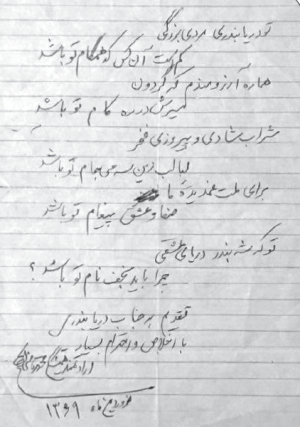 تو دریا بندری مردی بزرگی
کم است آن کس که همگام تو باشد
هماره آرزومندم که گردون
مسیرش در ره کام تو باشد
شراب شادی و پیروزی و فخر
لبالب زین سه می جام تو باشد
برای ملت غمدیدهٔ ما
صفا و عشق پیغام تو باشد
تو که شه بندر دریای عشقی
چرا باید نجف نام تو باشد؟
تقدیم بر جناب دریابندری
با اخلاص و احترام بسیار
ارادتمند
فروردین ماه ۱۳۶۹